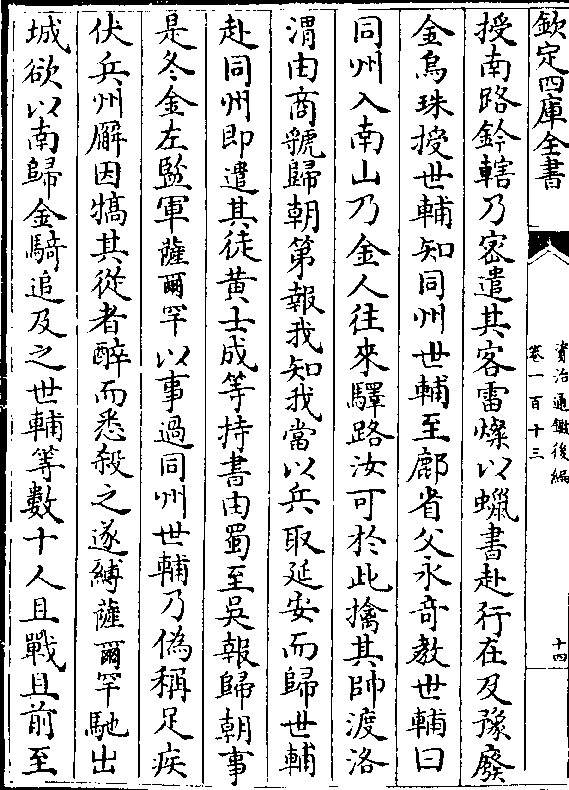 欽定四庫全書
資治通鑑後編
卷一百十三
十四
授南路鈐轄乃密遣其客雷燦以蠟書赴行在及豫廢
金烏珠授世輔知同州世輔至鄜省父永奇教世輔曰
同州入南山乃金人往來驛路汝可於此擒其帥渡洛
渭由商虢歸朝第報我知我當以兵取延安而歸世輔
赴同州即遣其徒黃士成等持書由蜀至吳報歸朝事
是冬金左監軍薩爾罕以事過同州世輔乃偽稱足疾
伏兵州廨因犒其從者醉而悉殺之遂縛薩爾罕馳出
城欲以南歸金騎追及之世輔等數十人且戰且前至